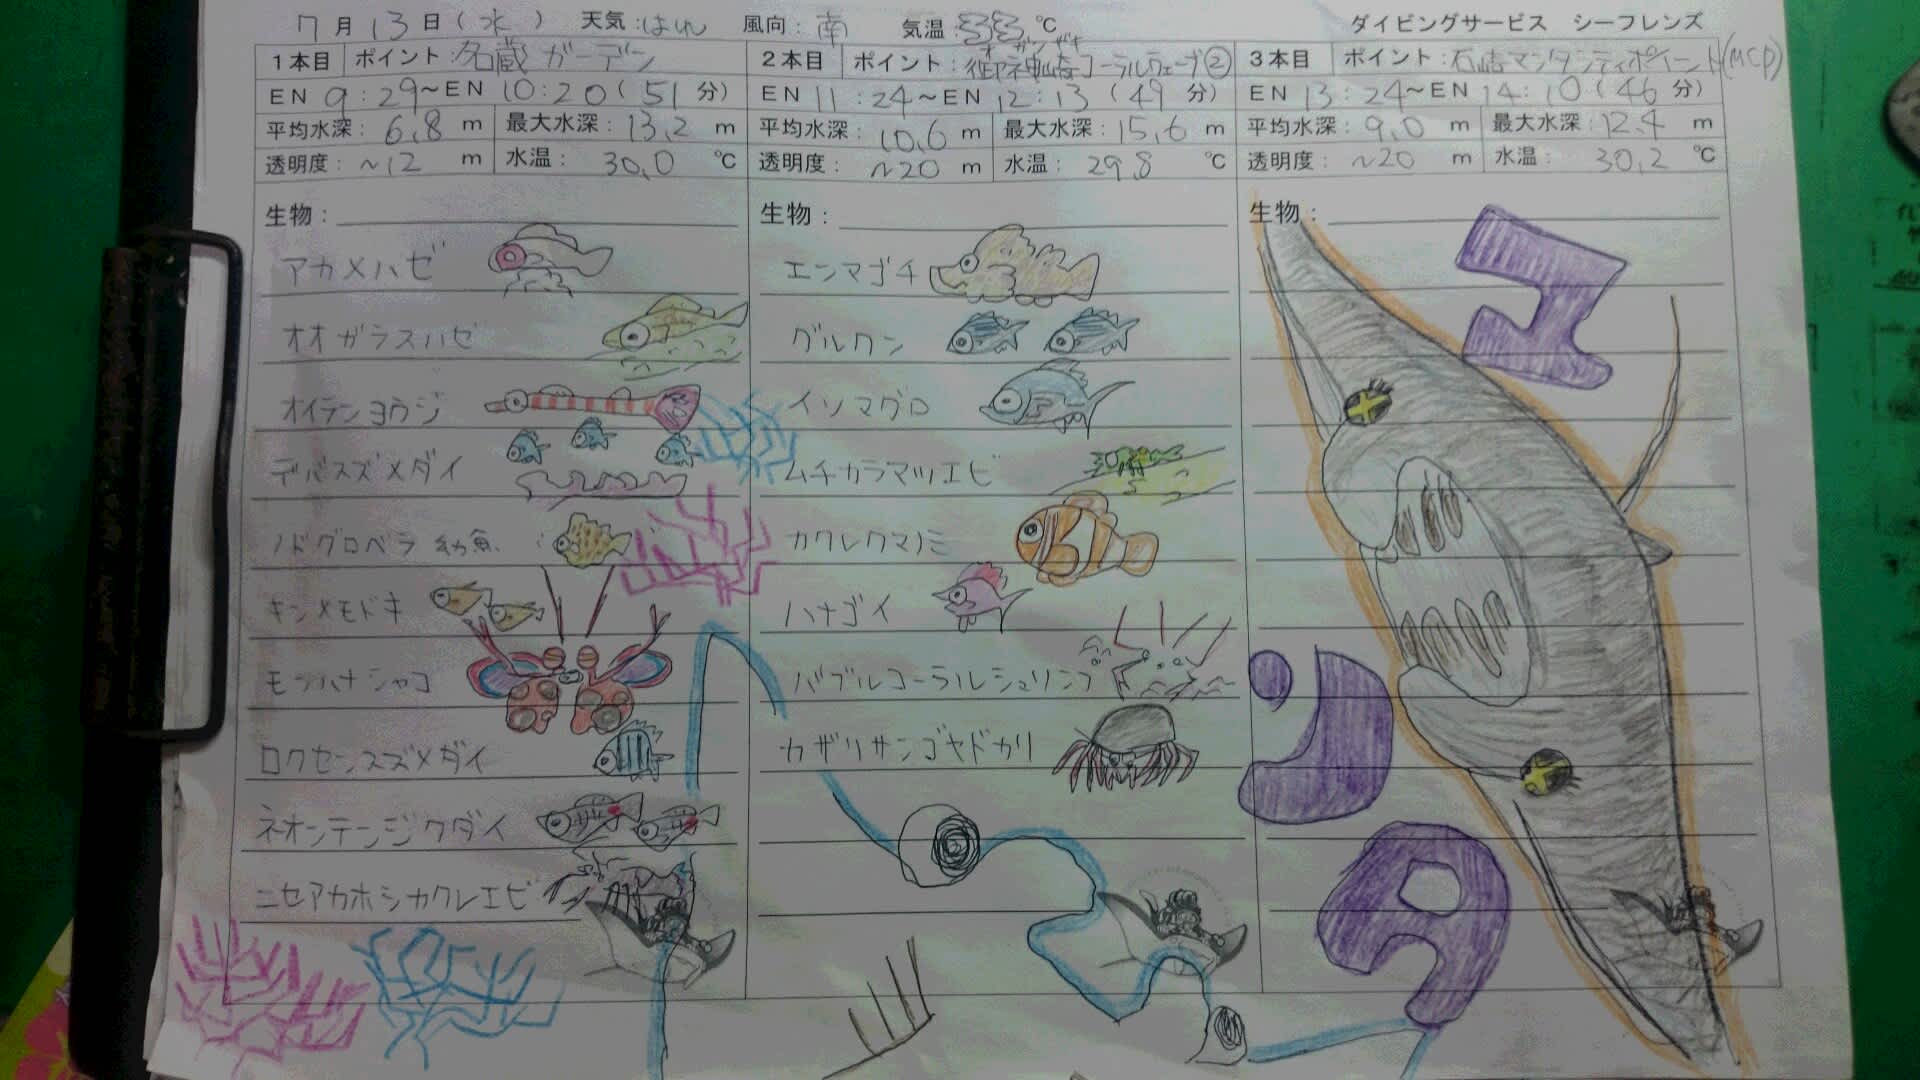 7月13日(水) 天気:はれ 風向:南 気温:33℃ ダイビングサービス シーフレンズ
1本目 ポイント:名蔵ガーデン
EN 9:29~EN 10:20(51分)
平均水深:6.8m 最大水深:13.2m
透明度:~12m 水温:30.0℃
生物:
アカメハゼ
オオガラスハゼ
オイランヨウジ
デバスズメダイ
ノドグロベラ 幼魚
キンメモドキ
モンハナシャコ
ロクセンスズメダイ
ネオンテンジクダイ
ニセアカホシカクレエビ
2本目 ポイント:御神崎コーラルウェーブ②
オガンザキ
EN 11:24~EN 12:13(49分)
平均水深:10.6m 最大水深:15.6m
透明度:~20m 水温:29.8℃
生物:
エンマゴチ
グルクン
イソマグロ
ムチカラマツエビ
カクレクマノミ
ハナゴイ
バブルコーラルシュリンプ
カザリサンゴヤドカリ
3本目 ポイント:石崎マンタシティポイント(MCP)
EN 13:24~EN 14:10(46分)
平均水深:9.0m 最大水深:12.4m
透明度:~20m 水温:30.2℃
生物:
マンタ